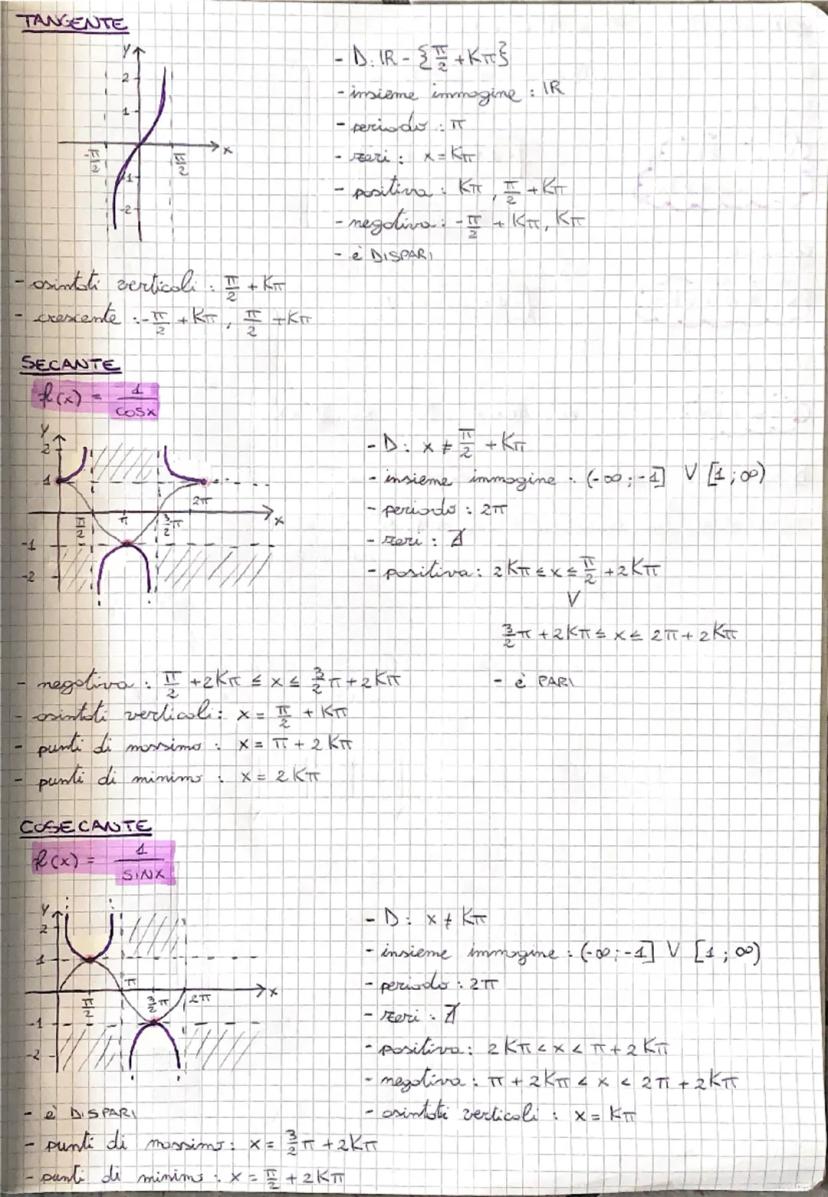 TANGENTE
y
2
1
-π/2 π/2 x
-1
-2
- D: IR - {π/2 + Kπ}
- insieme immagine : IR
- periodo : π
- zeri : x = Kπ
- positiva : Kπ, π/2 + Kπ
- negativa : -π/2 + Kπ, Kπ
- è DISPARI
- asintoti verticali : π/2 + Kπ
- crescente : -π/2 + Kπ, π/2 + Kπ
SECANTE
f(x) = 1/cosx
y
2
1
π/2 π 3/2 π 2π x
-1
-2
- D: x ≠ π/2 + Kπ
- insieme immagine : (-∞; -1] V [1; ∞)
- periodo : 2π
- zeri : ∄
- positiva : 2Kπ ≤ x ≤ π/2 + 2Kπ
V
3/2 π + 2Kπ ≤ x ≤ 2π + 2Kπ
- negativa : π/2 + 2Kπ ≤ x ≤ 3/2 π + 2Kπ
- è PARI
- asintoti verticali : x = π/2 + Kπ
- punti di massimo : x = π + 2Kπ
- punti di minimo : x = 2Kπ
COSECANTE
f(x) = 1/SINX
y
2
1
π/2 π 3/2 π 2π x
-1
-2
- D: x ≠ Kπ
- insieme immagine : (-∞; -1] V [1; ∞)
- periodo : 2π
- zeri : ∄
- positiva : 2Kπ < x < π + 2Kπ
- negativa : π + 2Kπ < x < 2π + 2Kπ
- è DISPARI
- asintoti verticali : x = Kπ
- punti di massimo : x = 3/2 π + 2Kπ
- punti di minimo : x = π/2 + 2Kπ